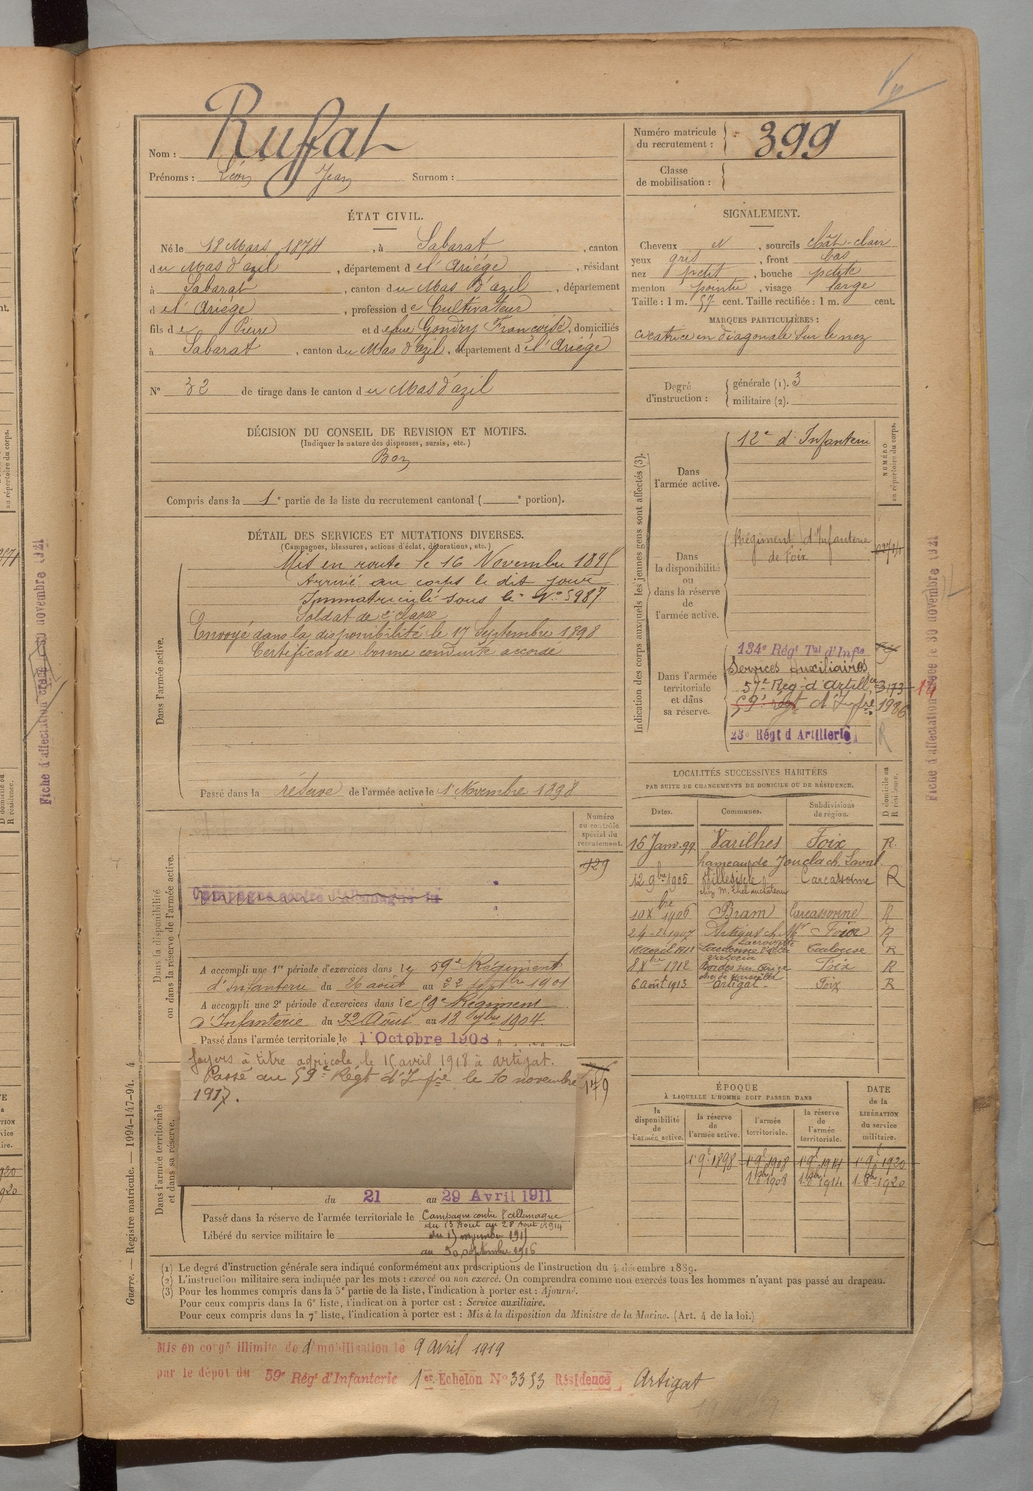 Rufat
Nom :
Prénoms : Léon Jean Surnom :
Numéro matricule du recrutement : 399
Classe de mobilisation :
ÉTAT CIVIL.
Né le 18 Mars 1874, à Sabarat, canton
du Mas d'azil, département de l'Ariége, résidant
à Sabarat, canton du Mas d'azil, département
de l'Ariége, profession de Cultivateur
fils de Pierre et de feue Gondry Françoise, domiciliés
à Sabarat, canton du Mas d'azil, département de l'Ariége
N° 32 de tirage dans le canton du Mas d'azil
DÉCISION DU CONSEIL DE REVISION ET MOTIFS.
(Indiquer la nature des dispenses, sursis, etc.)
Bon
Compris dans la 1e partie de la liste du recrutement cantonal ( e portion).
DÉTAIL DES SERVICES ET MUTATIONS DIVERSES.
(Campagnes, blessures, actions d'éclat, décorations, etc.)
Dans l'armée active.
Mis en route le 16 Novembre 1895
Arrivé au corps le dit jour
Immatriculé sous le N° 5987
Soldat de 2e classe
Envoyé dans la disponibilité le 17 Septembre 1898
Certificat de bonne conduite accordé
Passé dans la réserve de l'armée active le 1 Novembre 1898
Dans la disponibilité ou dans la réserve de l'armée active.
Numéro au contrôle spécial du recrutement.
929
Campagne contre l'Allemagne
A accompli une 1re période d'exercices dans le 59e Régiment
d'Infanterie du 26 août au 22 septbre 1901
A accompli une 2e période d'exercices dans le 59e Régiment
d'Infanterie du 22 Août au 18 7bre 1904.
Passé dans l'armée territoriale le 1 Octobre 1908
Dans l'armée territoriale et dans sa réserve.
foyers à titre agricole le 15 avril 1918 à artigat.
Passé au 59e Régt d'Infie le 10 novembre
1917.
149
du 21 au 29 Avril 1911
Passé dans la réserve de l'armée territoriale le Campagne contre l'allemagne
du 13 Aout au 28 Aout 1914
Libéré du service militaire le
au 30 septembre 1916
SIGNALEMENT.
Cheveux N, sourcils chât-clair
yeux gris, front bas
nez petit, bouche petite
menton pointu, visage large
Taille : 1 m. 57 cent. Taille rectifiée : 1 m. cent.
MARQUES PARTICULIÈRES :
cicatrice en diagonale sur le nez
Degré d'instruction : générale (1). 3
militaire (2).
Indication des corps auxquels les jeunes gens sont affectés (3).
NUMÉRO
Dans l'armée active. 12e d'Infanterie
Dans la disponibilité ou dans la réserve de l'armée active. Régiment d'Infanterie de Foix
Dans l'armée territoriale et dans sa réserve.
134e Régt Tal d'Infie
Services Auxiliaires
57e Reg. d'Artillie 14
59e regt d'Infie
23e Régt d'Artillerie
R
LOCALITÉS SUCCESSIVES HABITÉES
PAR SUITE DE CHANGEMENTS DE DOMICILE OU DE RÉSIDENCE.
Dates. Communes. Subdivisions de région. D domicile ou R résidence.
16 Janv. 99 Varilhes Foix R
12 9bre 1905 Carcassonne R
1906 Bram Carcassonne R
1907 Foix R
Toulouse R
8 Xbre 1912 Foix R
6 août 1913 artigat Foix R
ÉPOQUE
À LAQUELLE L'HOMME DOIT PASSER DANS
la disponibilité de l'armée active. la réserve de l'armée active. l'armée territoriale. la réserve de l'armée territoriale.
DATE de la LIBÉRATION du service militaire.
1 9bre 1898 1 9bre 1908 1 9bre 1914 1 9bre 1920
1 8bre 1908 1 8bre 1914 1 8bre 1920
(1) Le degré d'instruction générale sera indiqué conformément aux prescriptions de l'instruction du 4 décembre 1889.
(2) L'instruction militaire sera indiquée par les mots : exercé ou non exercé. On comprendra comme non exercés tous les hommes n'ayant pas passé au drapeau.
(3) Pour les hommes compris dans la 5e partie de la liste, l'indication à porter est : Ajourné.
Pour ceux compris dans la 6e liste, l'indication à porter est : Service auxiliaire.
Pour ceux compris dans la 7e liste, l'indication à porter est : Mis à la disposition du Ministre de la Marine. (Art. 4 de la loi.)
Mis en congé illimité de démobilisation le 9 avril 1919
par le dépôt du 59e Régt d'Infanterie 1er Echelon N° 3353 Résidence Artigat
Guerre. — Registre matricule. — 1994-147-94.
Fiche d'affectation le 30 novembre 1921